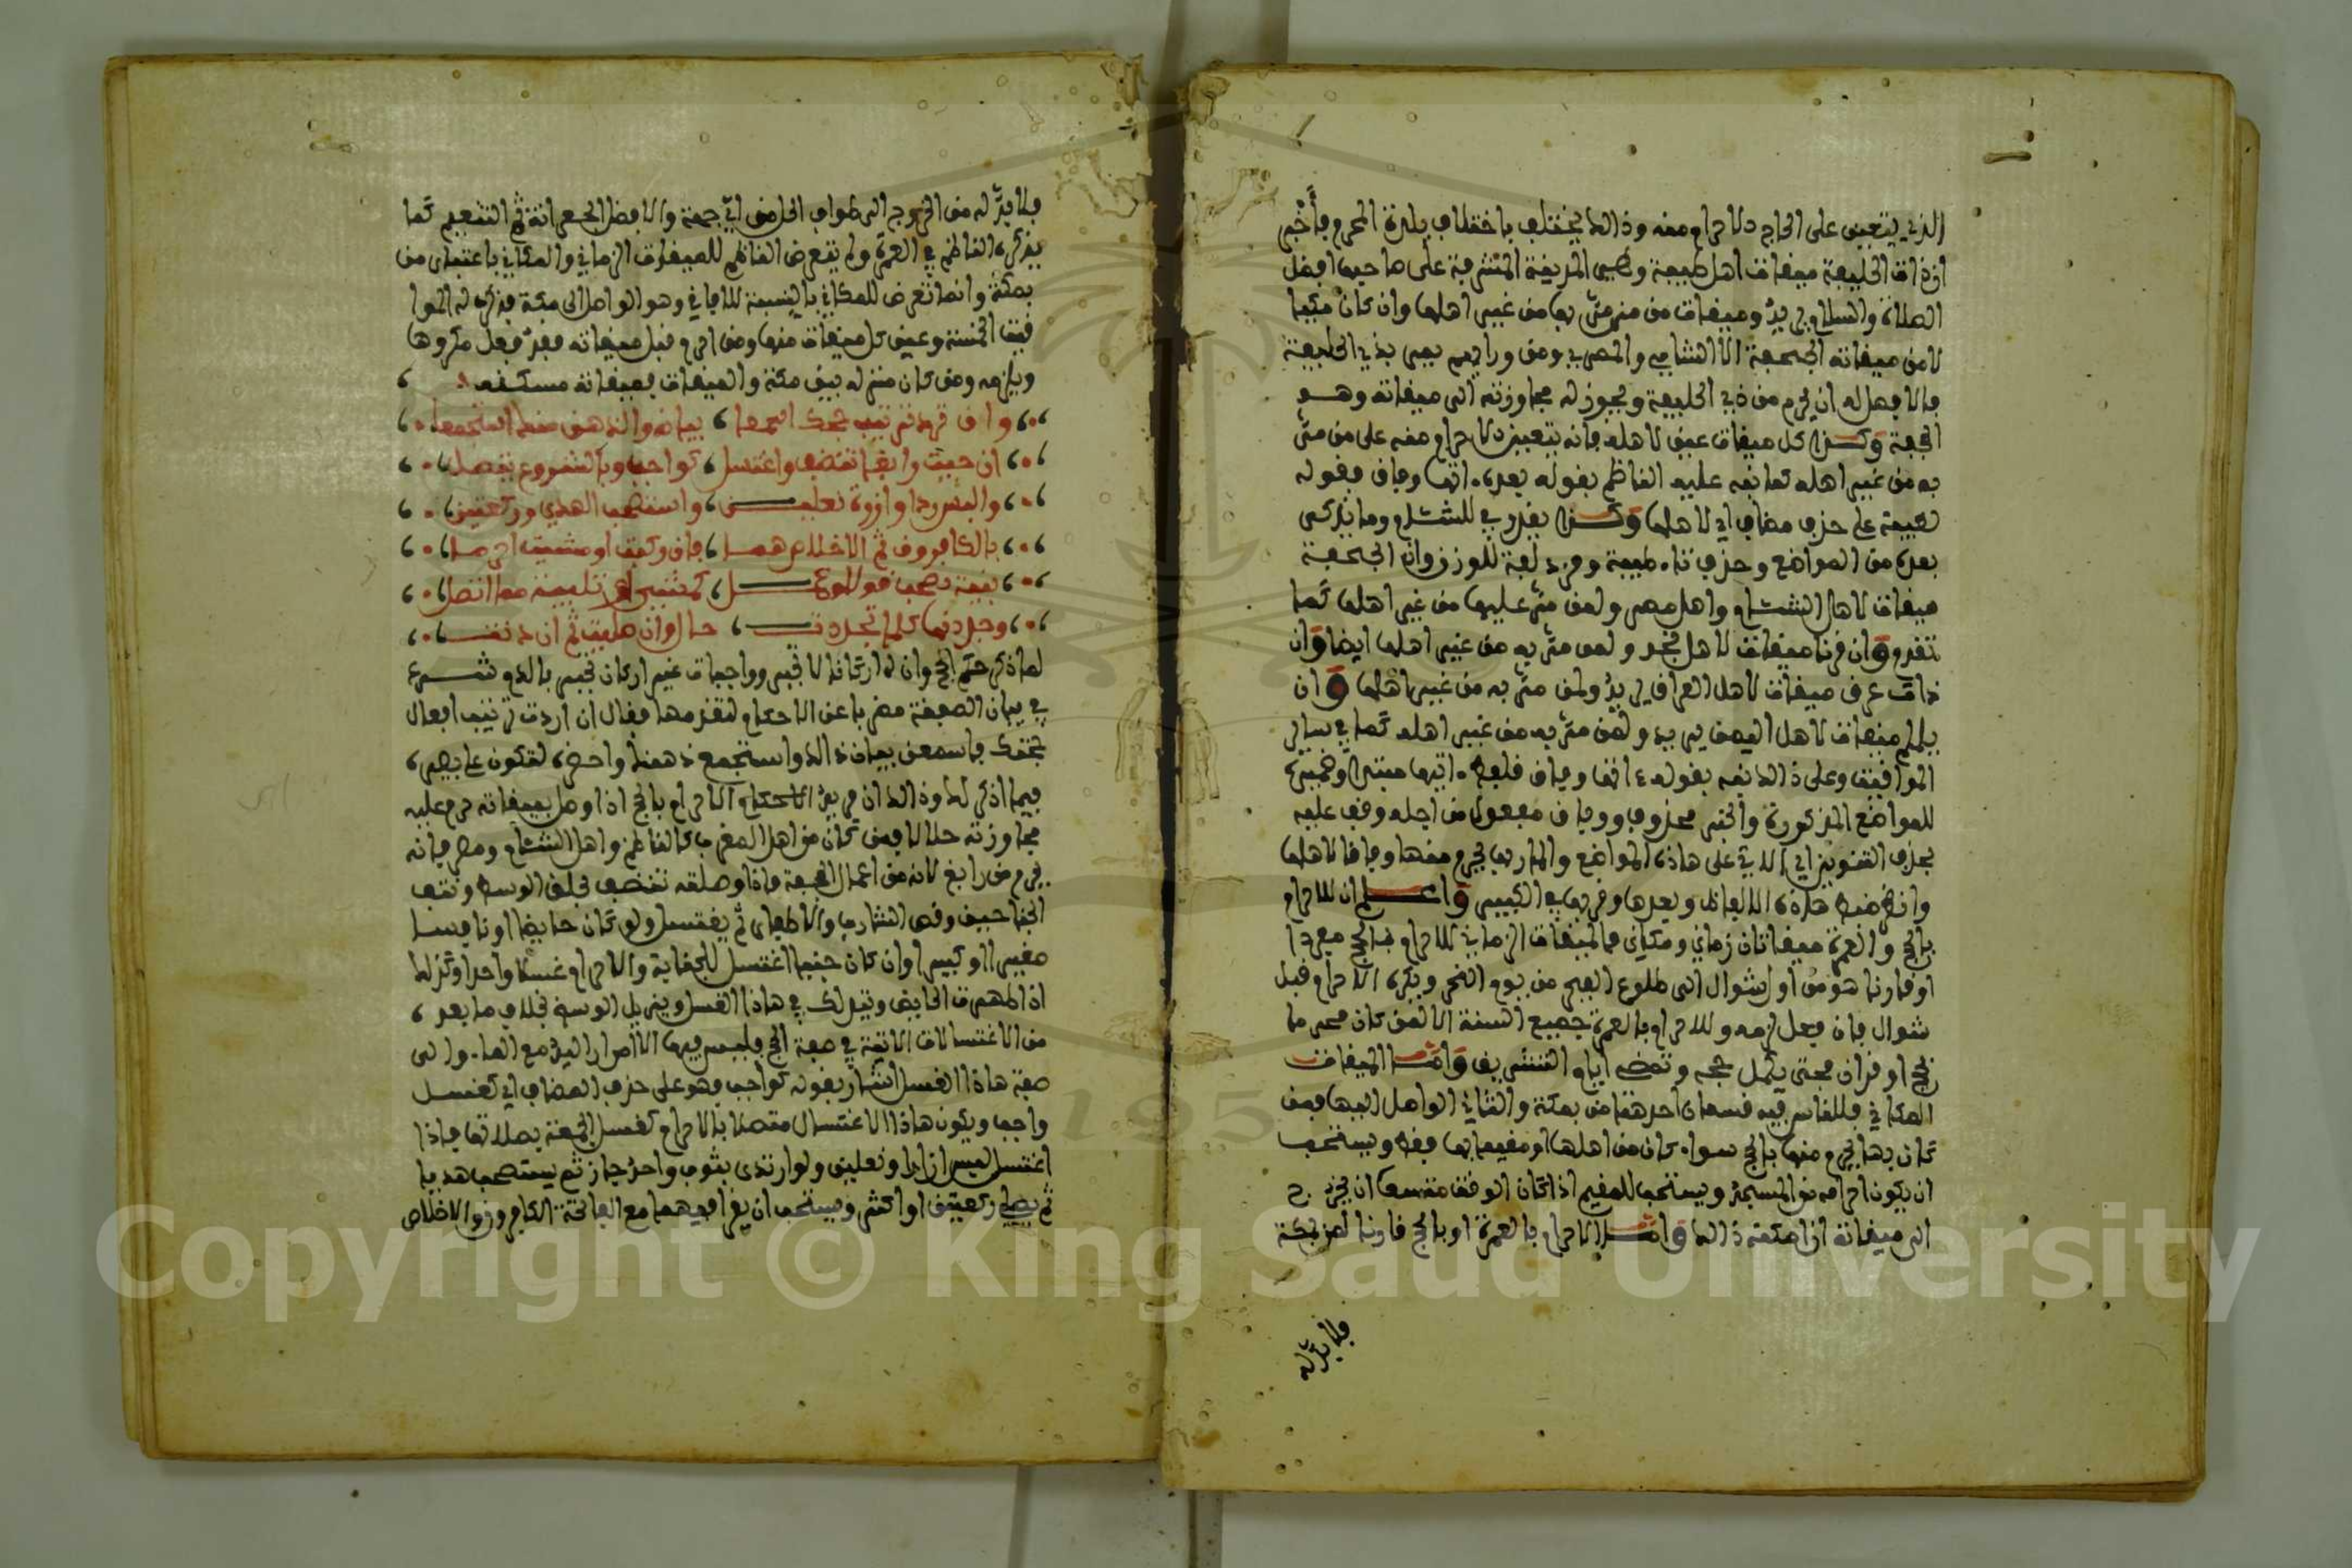 الذي يتعين على الحاج الاحرام منه وذالك يختلف باختلاف بلدة المحرم فأخبر
ان ذات الحليفة ميقات اهل طيبة وهي المدينة المشرفة على صاحبها افضل
الصلاة والسلام يريد وميقات من مر بها من غير اهلها وان كان مكيا
لا من ميقاته الجحفة كالشامي والمصري ومن وراءهم يمر بذي الحليفة
فالافضل له ان يحرم من ذي الحليفة ويجوز له مجاوزته الى ميقاته وهو
الجحفة وكذا كل ميقات عين لاهله فانه يتعين الاحرام منه على من مر
به من غير اهله كما نبه عليه الناظم بقوله بعد اتها وفاق فقوله
لطيبة على حذف مضاف اي لاهلها وكذا يقدر في للشام وما يذكر
بعده من المواضع وحذف تاء طيبة لغة للوزن وان الجحفة
ميقات لاهل الشام واهل مصر ولمن مر عليها من غير اهلها كما
تقدم وان قرنا ميقات لاهل نجد ولمن مر به من غير اهلها ايضا وان
ذات عرق ميقات لاهل العراق يريد ولمن مر به من غير اهلها وان
يلملم ميقات لاهل اليمن يريد ولمن مر به من غير اهله كما في سائر
المواقيت وعلى ذالك نبه بقوله ءاتها وفاق فلفظ ءاتيها مبتدا وضميره
للمواضع المذكورة والخبر محذوف ووفاق مفعول من اجله وقف عليه
بحذف التنوين اي الاتي على هاذه المواضع والمار بها يحرم منها وفاقا لاهلها
وانظر ضبط هاذه الالفاظ وبعدها وقربها في الكبير واعلم ان للاحرام
بالحج والعمرة ميقاتان زماني ومكاني فالميقات الزماني للاحرام بالحج مفردا
او قارنا هو من اول شوال الى طلوع الفجر من يوم النحر ويكره الاحرام قبل
شوال فان فعل لزمه وللاحرام بالعمرة جميع السنة الا لمن كان محرما
بحج او قران فحتى يكمل حجه وتمضي ايام التشريق واما الميقات
المكاني فللناس فيه قسمان احدهما من بمكة والثاني الواصل اليها فمن
كان بها يحرم منها بالحج سواء كان من اهلها او مقيما بها فقط ويستحب
ان يكون احرامه من المسجد ويستحب للمقيم اذا كان الوقت متسعا ان يخرج
الى ميقاته ان امكنه ذالك واما الاحرام بالعمرة او بالحج قارنا لمن بمكة
فلا بد له
فلا بد له من الخروج الى طواف الحل من اي جهة والافضل الجعرانة ثم التنعيم كما
يذكره الناظم في العمرة ولم يتعرض الناظم للميقات الزماني والمكاني باعتبار من
بمكة وانما تعرض للمكاني بالنسبة للافاقي وهو الواصل الى مكة فذكر له الموا
قيت الخمسة وعين كل ميقات منها ومن احرم قبل ميقاته فقد فعل مكروها
ويلزمه ومن كان منزله بين مكة والميقات فميقاته مسكنه
وان ترد ترتيب حجك اسمعا بيانه والذهن منك استجمعا
ان جيت رابغا تنضف واغتسل كواجب وبالشروع يتصل
والبس ردا وازرة نعلين واستصحب الهدي وركعتين
بالكافرون ثم الاخلاص هما فان ركبت او مشيت احرما
بنية تصحب قولا او عمل كمشي او تلبية مما اتصل
وجددنها كلما تجددت حال وان صليت ثم ان دنت
لما ذكر حكم الحج وان له اركانا لا تجبر وواجبات غير اركان تجبر بالدم شرع
في بيان الصفة مضربا عن الاحكام لتقدمها فقال ان اردت ترتيب افعال
حجك فاسمعن بيان ذالك واستجمع ذهنك واحضره لتكون على بصيرة
فيما اذكر لك وذالك ان مريد الاحرام بالحج اذا وصل لميقاته حرم عليه
مجاوزته حلالا فمن كان من اهل المغرب كالناظم واهل الشام ومصر فانه
يحرم من رابغ لانه من اعمال الجحفة فاذا وصلته تنضف بحلق الوسط ونتف
الجناحين وقص الشارب والاظفار ثم يغتسل ولو كان حايضا او نافسا
صغيرا او كبيرا وان كان جنبا اغتسل للجنابة والاحرام غسلا واحدا وكذلك
اذا طهرت الحايض ويتدلك في هاذا الغسل ويزيل الوسخ بخلاف ما بعده
من الاغتسالات الاتية في صفة الحج فليس فيها الا امرار اليد مع الماء والى
صفة هاذا الغسل اشار بقوله كواجب وهو على حذف المضاف اي كغسل
واجب ويكون هاذا الاغتسال متصلا بالاحرام كغسل الجمعة بصلاتها فاذا
اغتسل لبس ازارا ونعلين ولو ارتدى بثوب واحد جاز ثم يستصحب هديا
ثم يصلي ركعتين او اكثر ويستحب ان يقرا فيهما مع الفاتحة الكافرون والاخلاص
Copyright © King Saud University
195